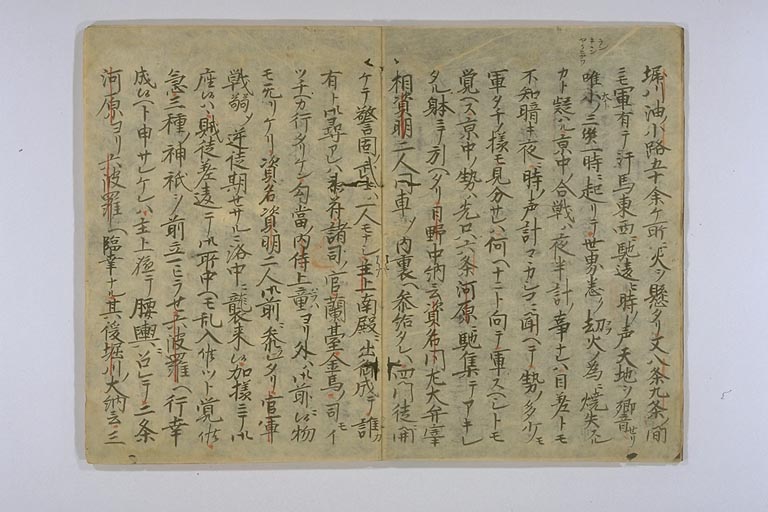 堀川油小路五十余ケ所ニ火ヲ懸タリ又八条九条ノ間
ニモ軍有テ汗馬東西ニ馳遠ヒ時ノ声天地ヲ響セリ
唯小ノ三災一時ニ起リテ世界悉ク劫火ノ為ニ焼失スル
カト疑ハル京中ノ合戦ハ夜半計ノ事ナレハ目差トモ
不知暗キ夜ニ時ノ声計コヽカシコニ聞ヘテ勢ノ多少モ
軍タチノ様モ見分サレハ何ヘナニト向テ軍スヘシトモ
覚ヘス京中ノ勢ハ先只六条河原ニ馳集テアキレ
タル躰ニテ引ヘタリ日野中納言資名同左大弁宰
相資明二人同車ノ内裏ヘ参給タレハ四門徒ニ開
ケテ警固ノ武士ハ一人モナシ主上南殿ニ出御成テ誰カ
有ト御尋アレ共衛府諸司ノ官蘭臺金馬ノ司モイ
ツチヘカ行タリケン勾當ノ内侍上童ヨリ外ハ御前ニ候物
モ无リケリ資名資明二人御前ニ参テ官軍
戦弱ノ逆徒期セサルニ洛中ニ襲来候加様ニテ御
座候ハ賊徒差違テ御所中ヘモ乱入仕ツト覚候
急三種ノ神祇ヲ前立ニテ六波羅ヘ行幸
成候ヘト申サレケレハ主上頓テ腰輿ニ召レテ二条
河原ヨリ六波羅ヘ臨幸ナル其後堀川大納言三